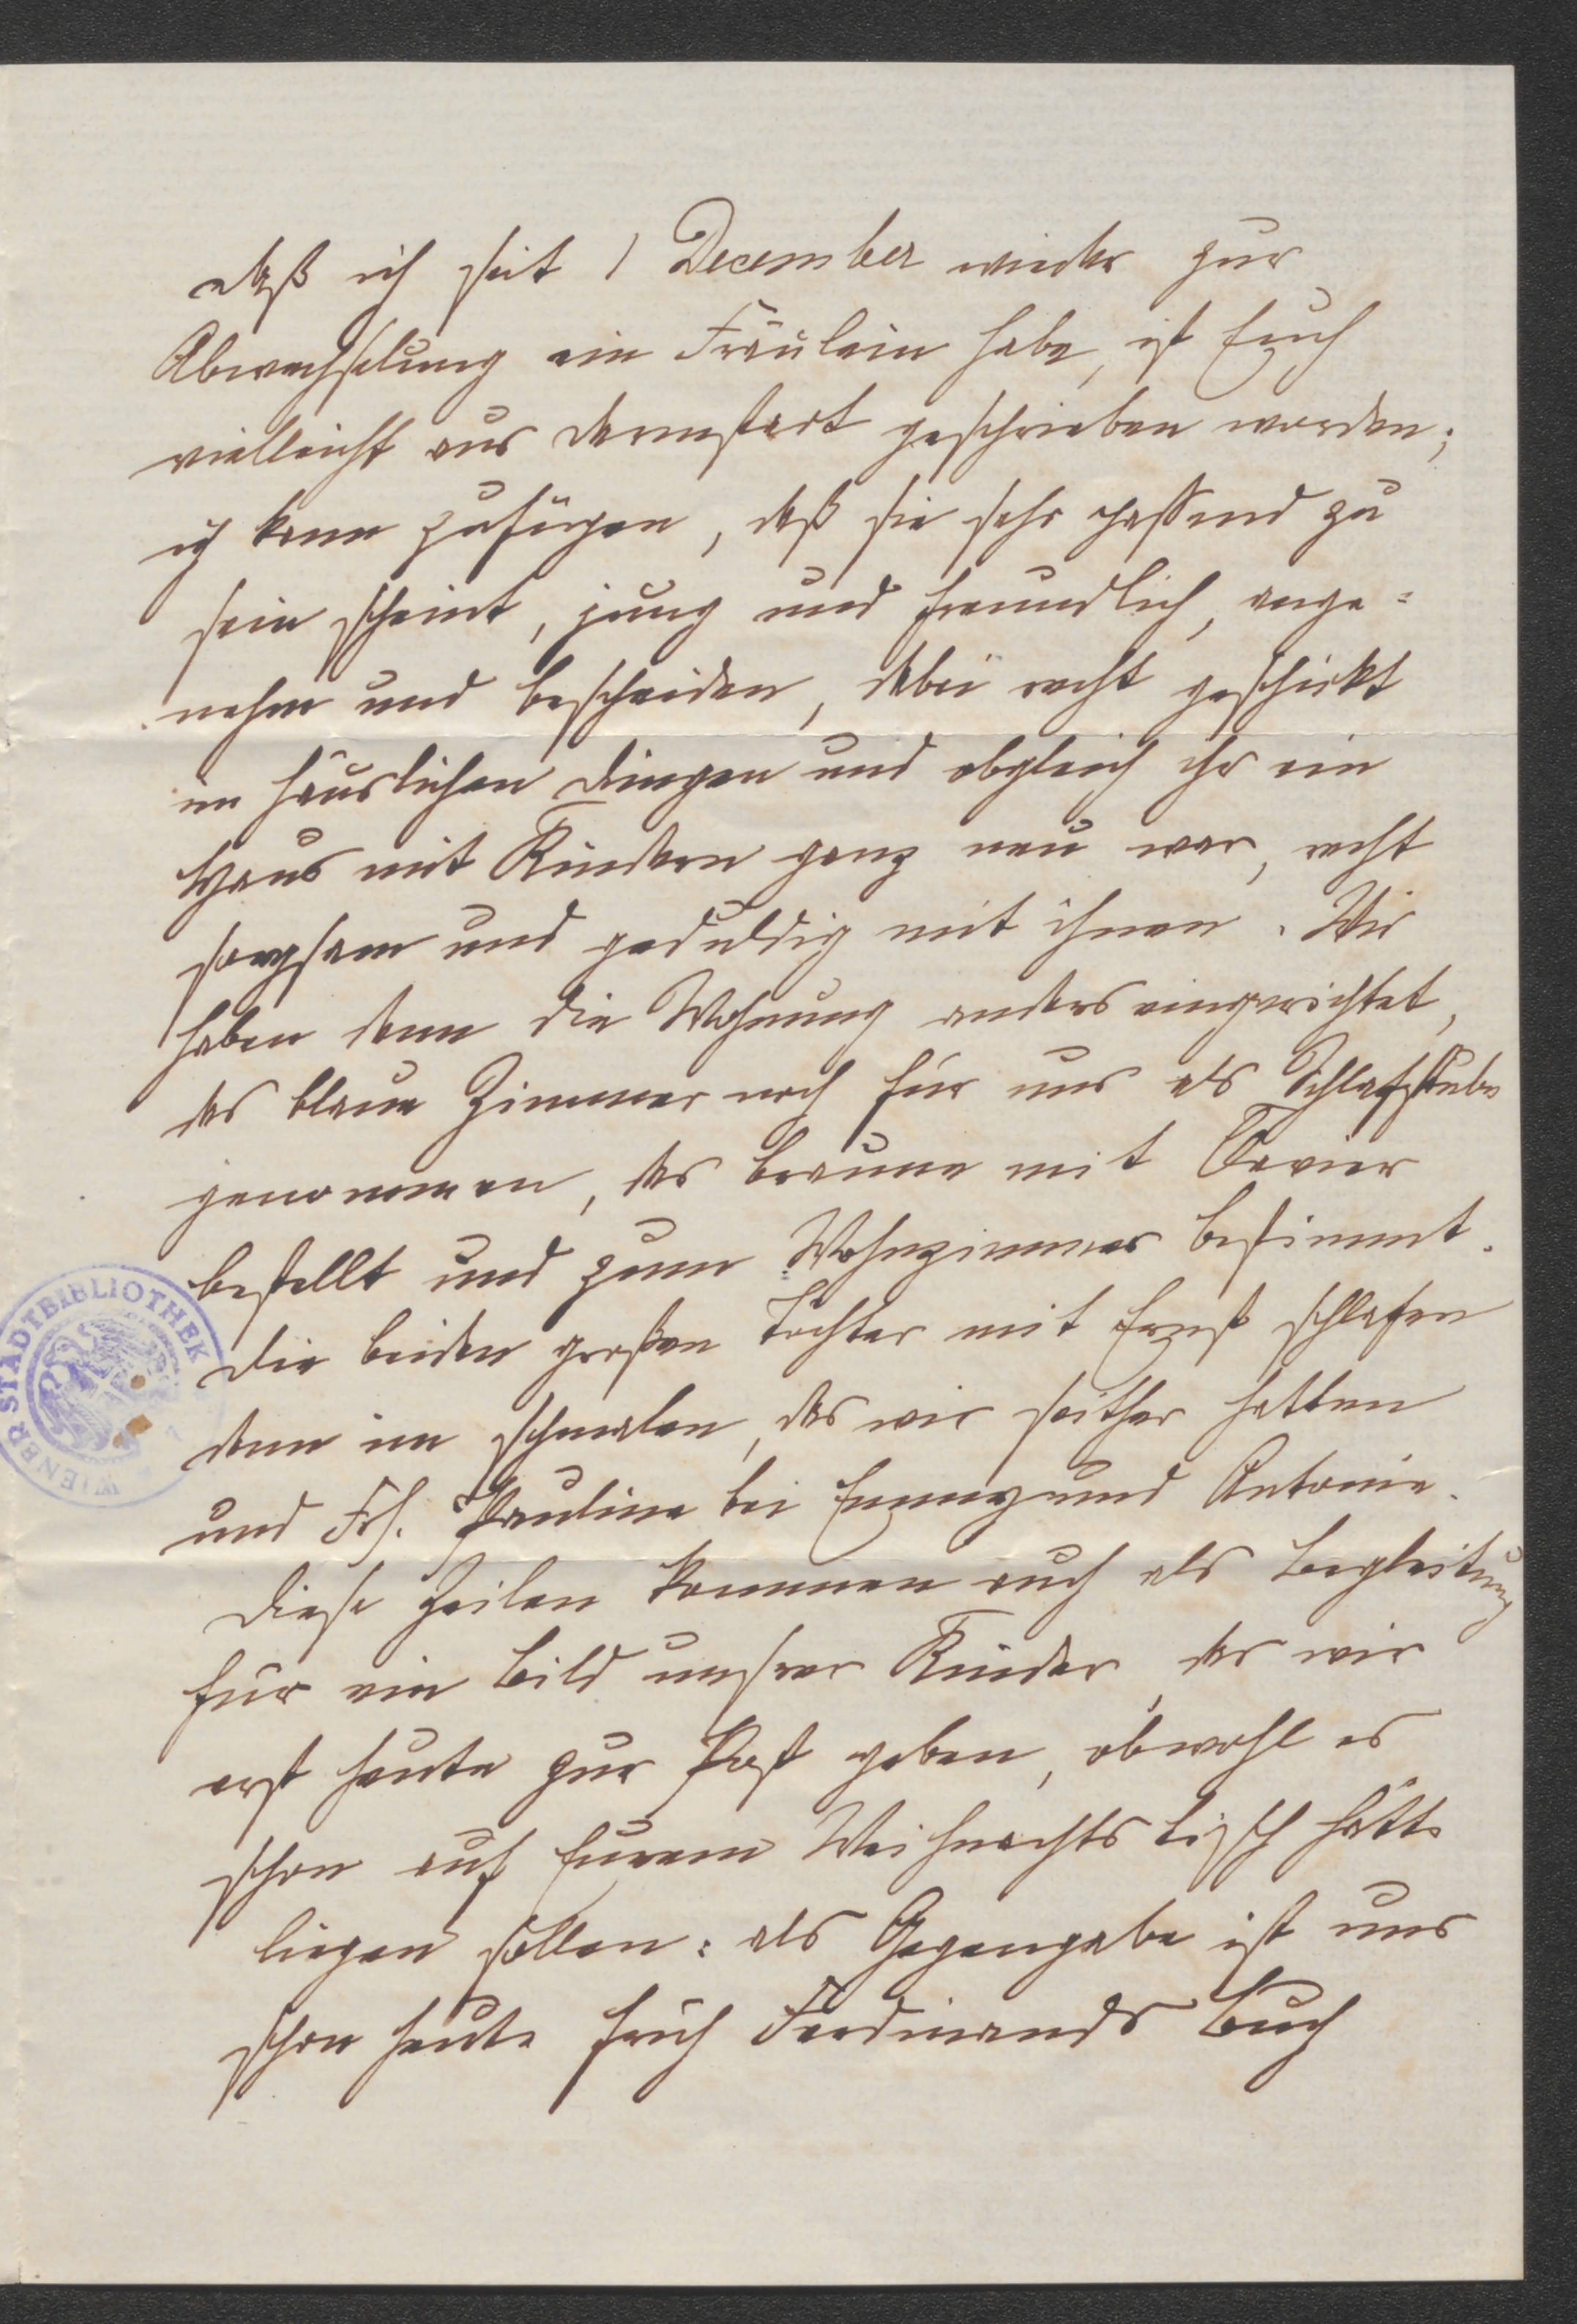 daß ich seit 1 December wieder zur
Abwechslung ein Fräulein habe, ist Euch
vielleicht aus Darmstadt geschrieben worden;
ich kann zufügen, daß sie sehr passend zu
sein scheint, jung und freundlich, ange=
nehm und bescheiden, dabei recht geschickt
in häuslichen Dingen und obgleich ihr ein
Haus mit Kindern ganz neu war, recht
sorgsam und geduldig mit ihnen. Wir
haben dann die Wohnung anders eingerichtet,
das blaue Zimmer noch für uns als Schlafstube
genommen, das braune mit Clavier
bestellt und zum Wohnzimmer bestimmt.
Die beiden großen Töchter mit Ernst schlafen
dann im schmalen, das wir seither hatten
und Frl. Pauline bei Emmy und Antonie.
Diese Zeilen kommen auch als Begleitung
für ein Bild unsrer Kinder, das wir
erst heute zur Post geben, obwohl es
schon auf Eurem Weihnachtstisch hätte
liegen sollen: als Gegengabe ist uns
schon heute früh Ferdinands Buch
WIENER STADTBIBLIOTHEK